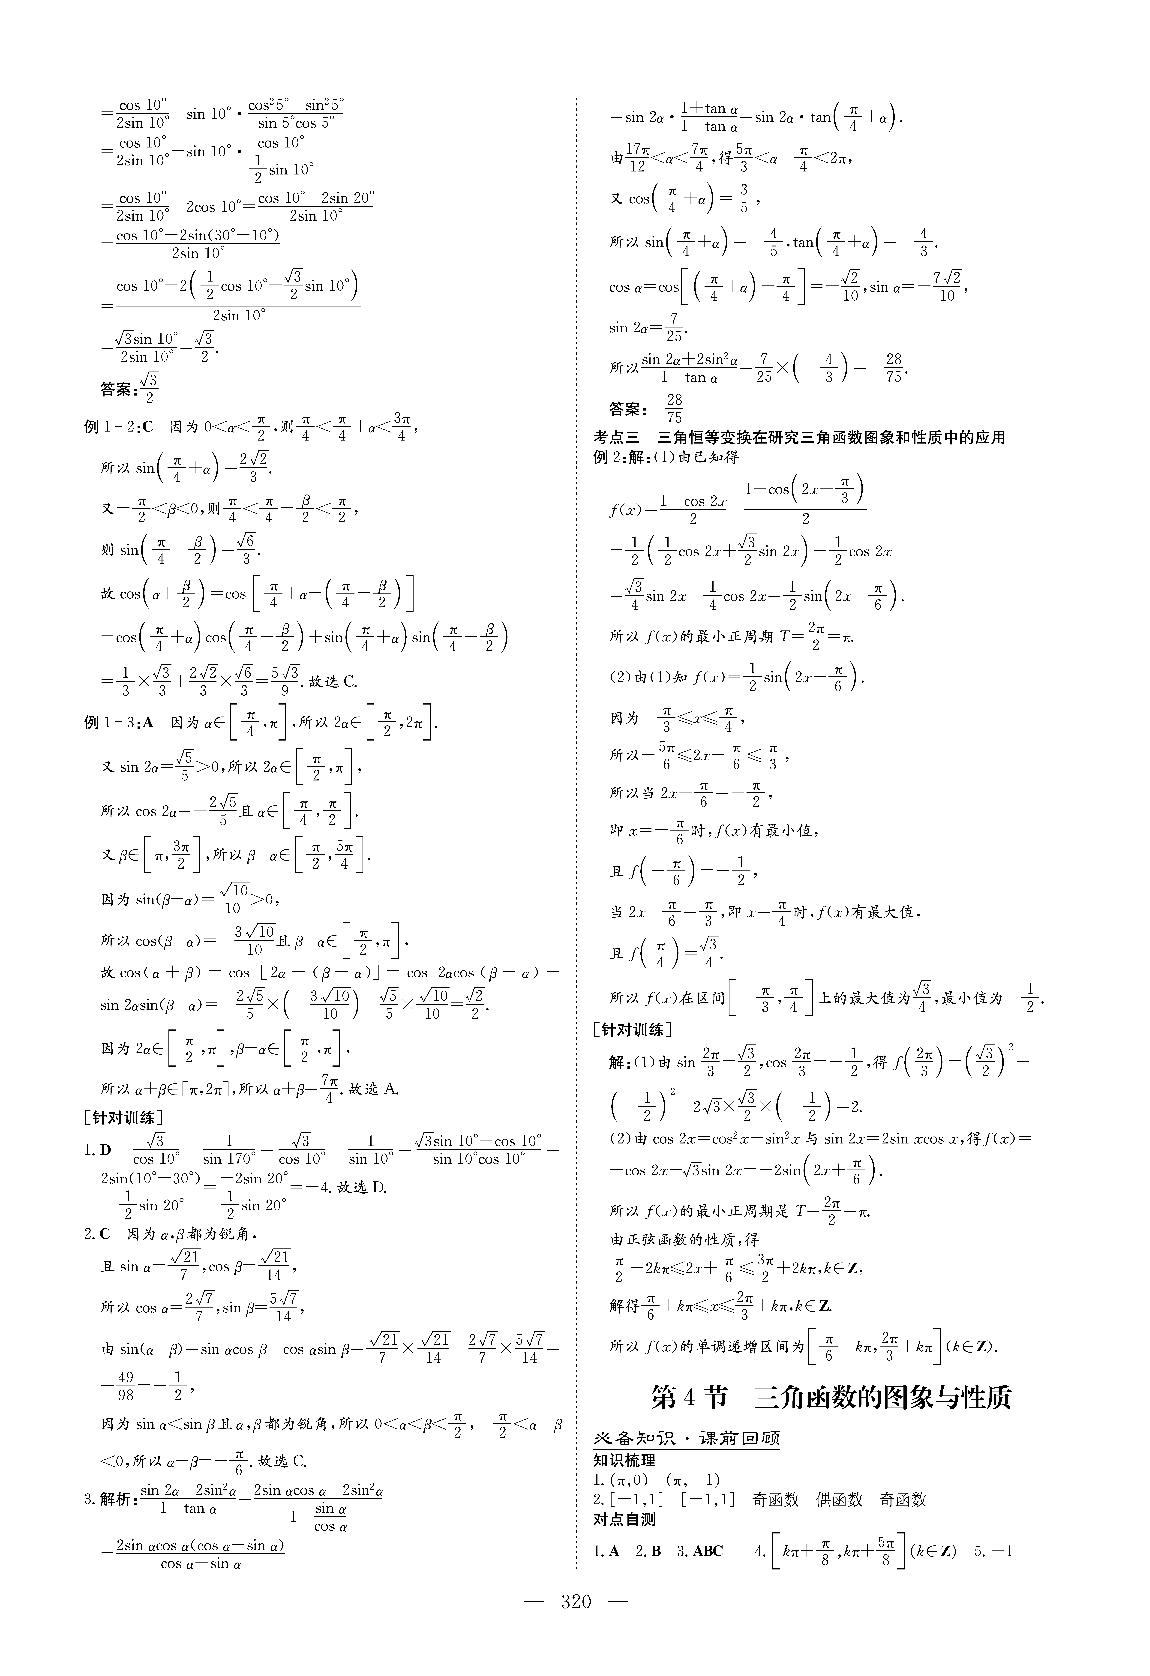 =cos 10°/2sin 10° sin 10°·cos²5° sin²5°/sin 5°cos 5°
=cos 10°/2sin 10°−sin 10°·cos 10°/(1/2 sin 10°)
=cos 10°/2sin 10° 2cos 10°=cos 10° 2sin 20°/2sin 10°
=cos 10°−2sin(30°−10°)/2sin 10°
=cos 10°−2(1/2 cos 10°−√3/2 sin 10°)/2sin 10°
=√3sin 10°/2sin 10°=√3/2.
答案:√3/2
例1-2:C 因为0<α<π/2,则π/4<π/4+α<3π/4,
所以sin(π/4+α)=2√2/3.
又−π/2<β<0,则π/4<π/4−β/2<π/2,
则sin(π/4 β/2)=√6/3.
故cos(α+β/2)=cos[π/4+α−(π/4−β/2)]
=cos(π/4+α)cos(π/4−β/2)+sin(π/4+α)sin(π/4−β/2)
=1/3×√3/3+2√2/3×√6/3=5√3/9.故选C.
例1-3:A 因为α∈[π/4,π],所以2α∈[π/2,2π].
又sin 2α=√5/5>0,所以2α∈[π/2,π],
所以cos 2α=−2√5/5且α∈[π/4,π/2].
又β∈[π,3π/2],所以β α∈[π/2,5π/4].
因为sin(β−α)=√10/10>0,
所以cos(β α)= 3√10/10且β α∈[π/2,π],
故cos(α+β)=cos[2α−(β−α)]=cos 2αcos(β−α)−
sin 2αsin(β α)= 2√5/5×( 3√10/10) √5/5×√10/10=√2/2.
因为2α∈[π/2,π],β−α∈[π/2,π],
所以α+β∈[π,2π],所以α+β=7π/4.故选A.
[针对训练]
1.D √3/cos 10° 1/sin 170°=√3/cos 10° 1/sin 10°=√3sin 10°−cos 10°/sin 10°cos 10°=
2sin(10°−30°)/(1/2 sin 20°)=−2sin 20°/(1/2 sin 20°)=−4.故选D.
2.C 因为α,β都为锐角,
且sin α=√21/7,cos β=√21/14,
所以cos α=2√7/7,sin β=5√7/14,
由sin(α β)=sin αcos β cos αsin β=√21/7×√21/14 2√7/7×5√7/14=
−49/98=−1/2,
因为sin α<sin β且α,β都为锐角,所以0<α<β<π/2, π/2<α β
<0,所以α−β=−π/6.故选C.
3.解析:sin 2α 2sin²α/1 tan α=2sin αcos α 2sin²α/(1 sin α/cos α)
=2sin αcos α(cos α−sin α)/cos α−sin α
=sin 2α·1+tan α/1 tan α=sin 2α·tan(π/4+α).
由17π/12<α<7π/4,得5π/3<α π/4<2π,
又cos(π/4+α)=3/5,
所以sin(π/4+α)= 4/5,tan(π/4+α)= 4/3.
cos α=cos[(π/4+α)−π/4]=−√2/10,sin α=−7√2/10,
sin 2α=7/25.
所以sin 2α+2sin²α/1 tan α=7/25×( 4/3)= 28/75.
答案: 28/75
考点三 三角恒等变换在研究三角函数图象和性质中的应用
例2:解:(1)由已知得
f(x)=1 cos 2x/2 1−cos(2x−π/3)/2
=1/2(1/2 cos 2x+√3/2 sin 2x)−1/2 cos 2x
=√3/4 sin 2x 1/4 cos 2x=1/2 sin(2x π/6).
所以f(x)的最小正周期T=2π/2=π.
(2)由(1)知f(x)=1/2 sin(2x−π/6).
因为 π/3≤x≤π/4,
所以−5π/6≤2x−π/6≤π/3,
所以当2x−π/6=−π/2,
即x=−π/6时,f(x)有最小值,
且f(−π/6)=−1/2,
当2x π/6=π/3,即x=π/4时,f(x)有最大值,
且f(π/4)=√3/4.
所以f(x)在区间[ π/3,π/4]上的最大值为√3/4,最小值为 1/2.
[针对训练]
解:(1)由sin 2π/3=√3/2,cos 2π/3=−1/2,得f(2π/3)=(√3/2)²−
( 1/2)² 2√3×√3/2×( 1/2)=2.
(2)由cos 2x=cos²x−sin²x与sin 2x=2sin xcos x,得f(x)=
−cos 2x−√3sin 2x=−2sin(2x+π/6).
所以f(x)的最小正周期是T=2π/2=π.
由正弦函数的性质,得
π/2+2kπ≤2x+π/6≤3π/2+2kπ,k∈Z,
解得π/6+kπ≤x≤2π/3+kπ,k∈Z.
所以f(x)的单调递增区间为[π/6 kπ,2π/3+kπ](k∈Z).
第4节 三角函数的图象与性质
必备知识·课前回顾
知识梳理
1.(π,0) (π, 1)
2.[−1,1] [−1,1] 奇函数 偶函数 奇函数
对点自测
1.A 2.B 3.ABC 4.[kπ+π/8,kπ+5π/8](k∈Z) 5.−1
— 320 —